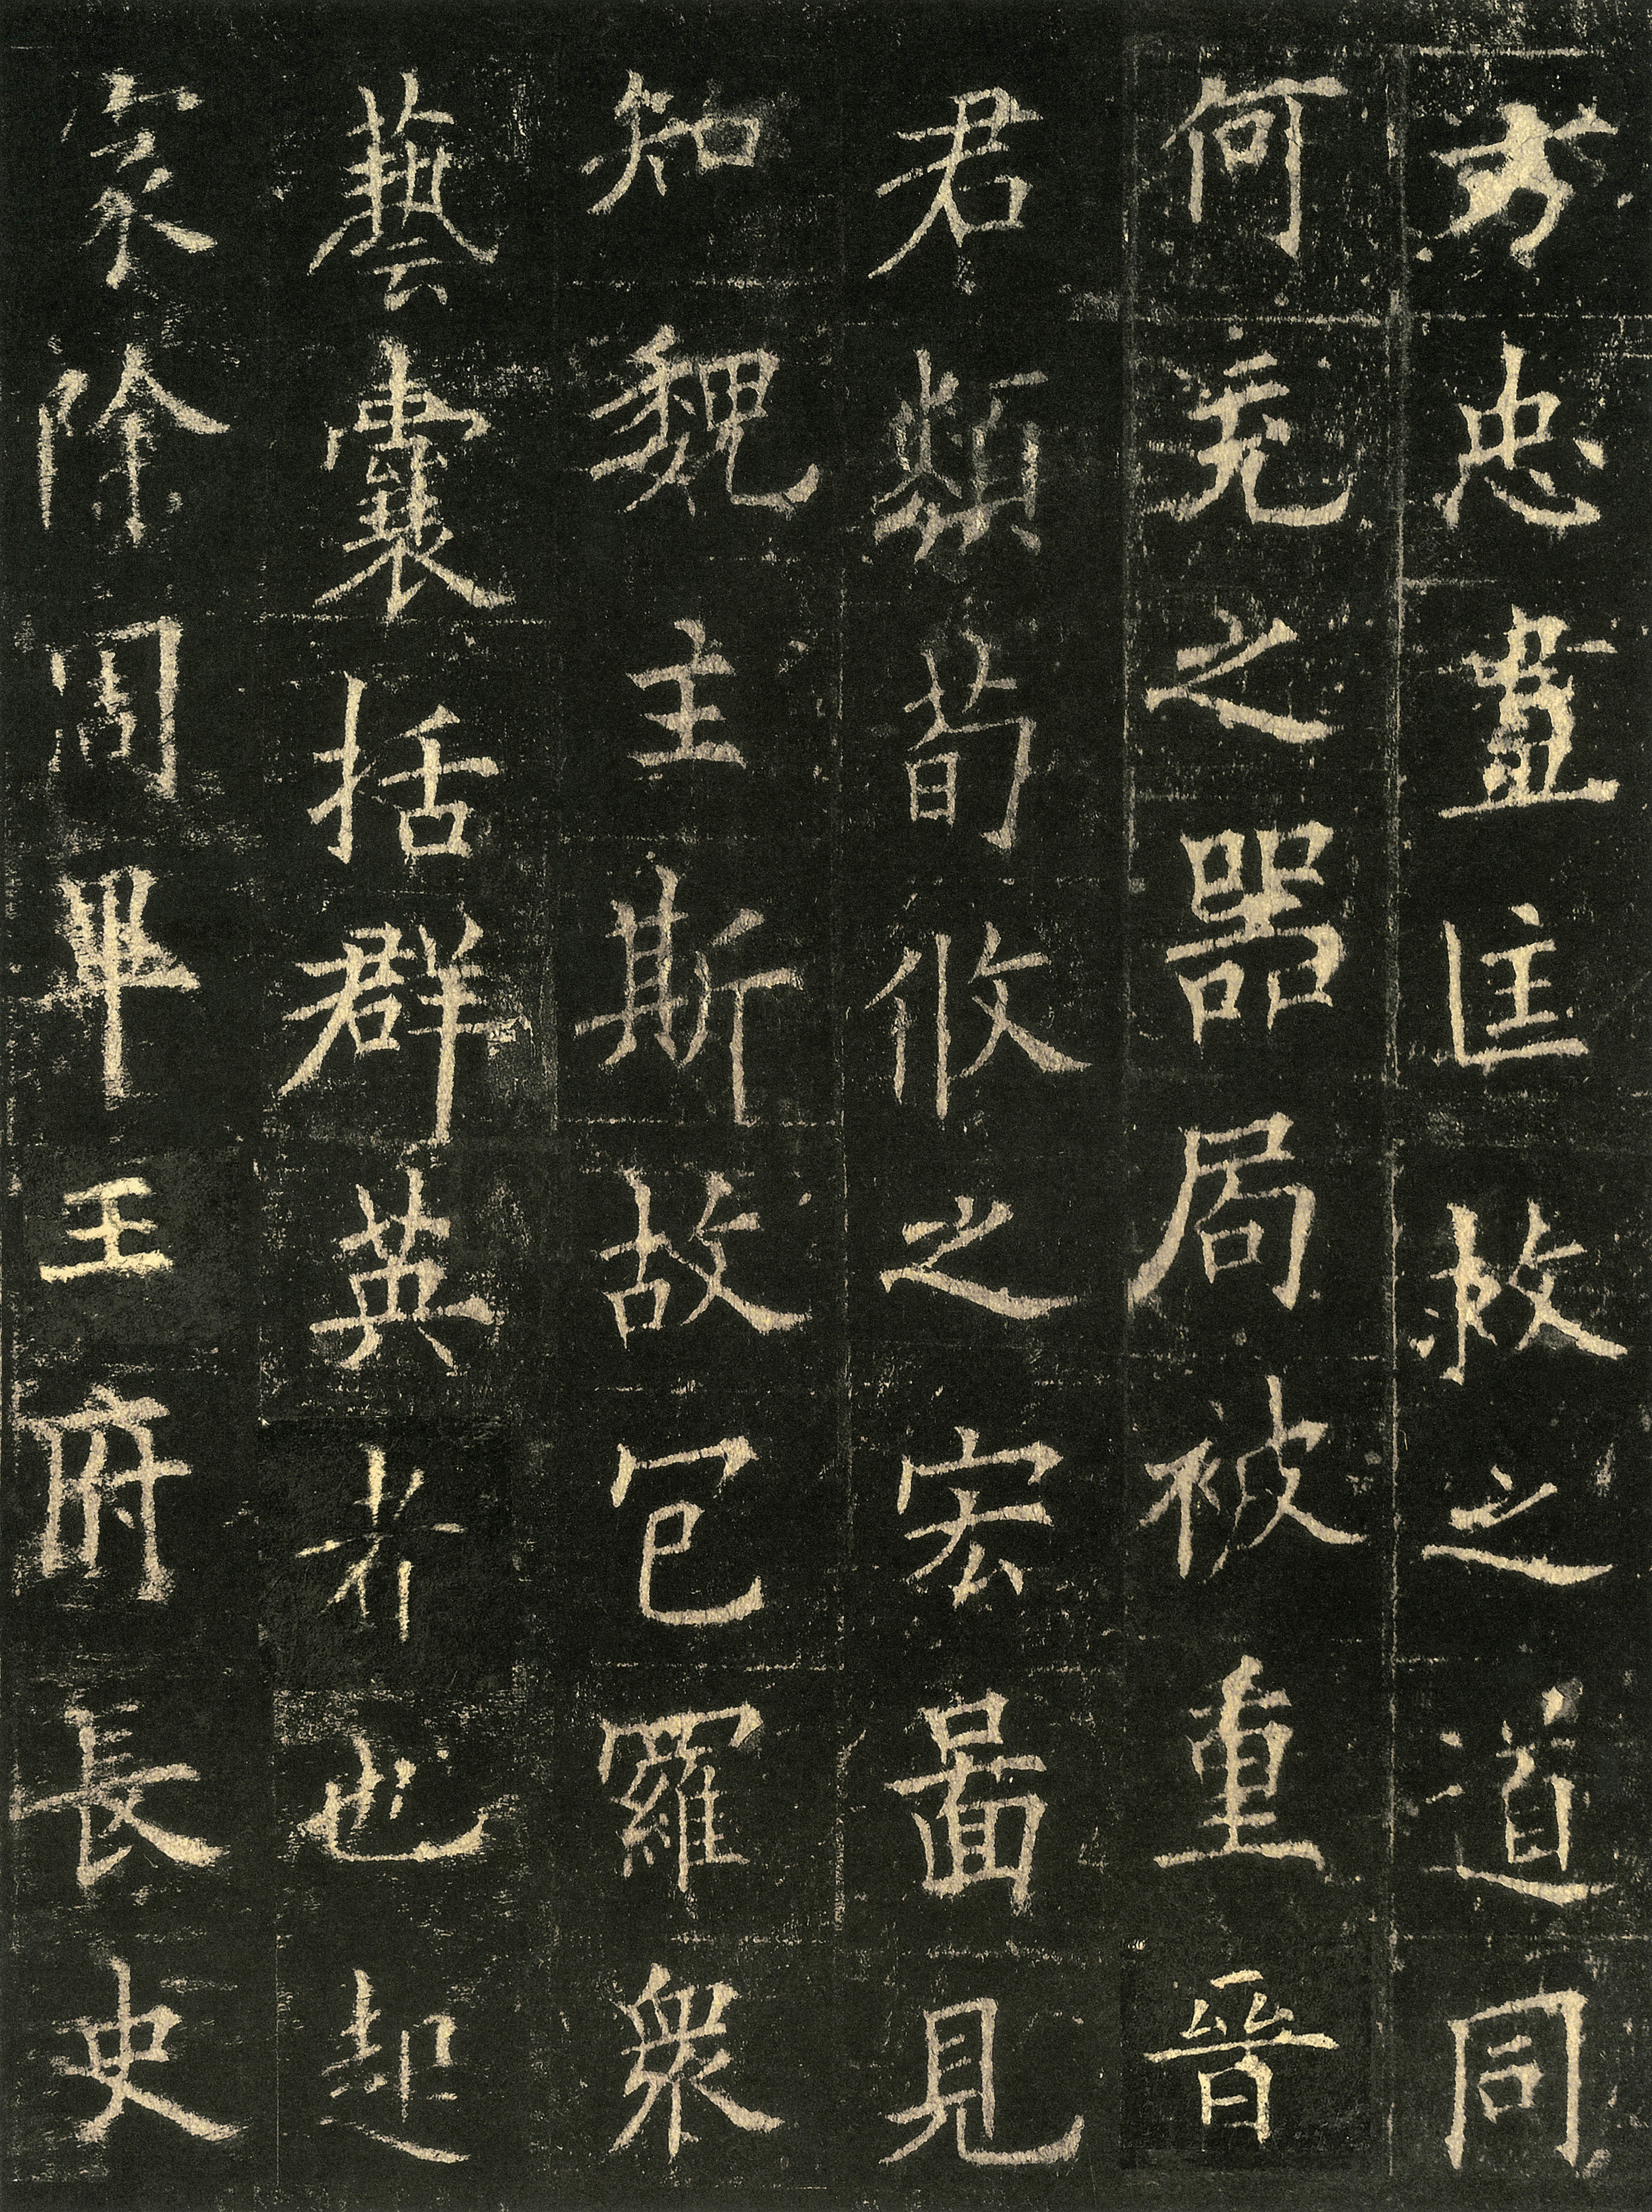 方忠盡匡救之道同
何充之器局被重晉
君類荀攸之宏圖見
知魏主斯故包羅衆
藝囊括群英者也起
家除周畢王府長史